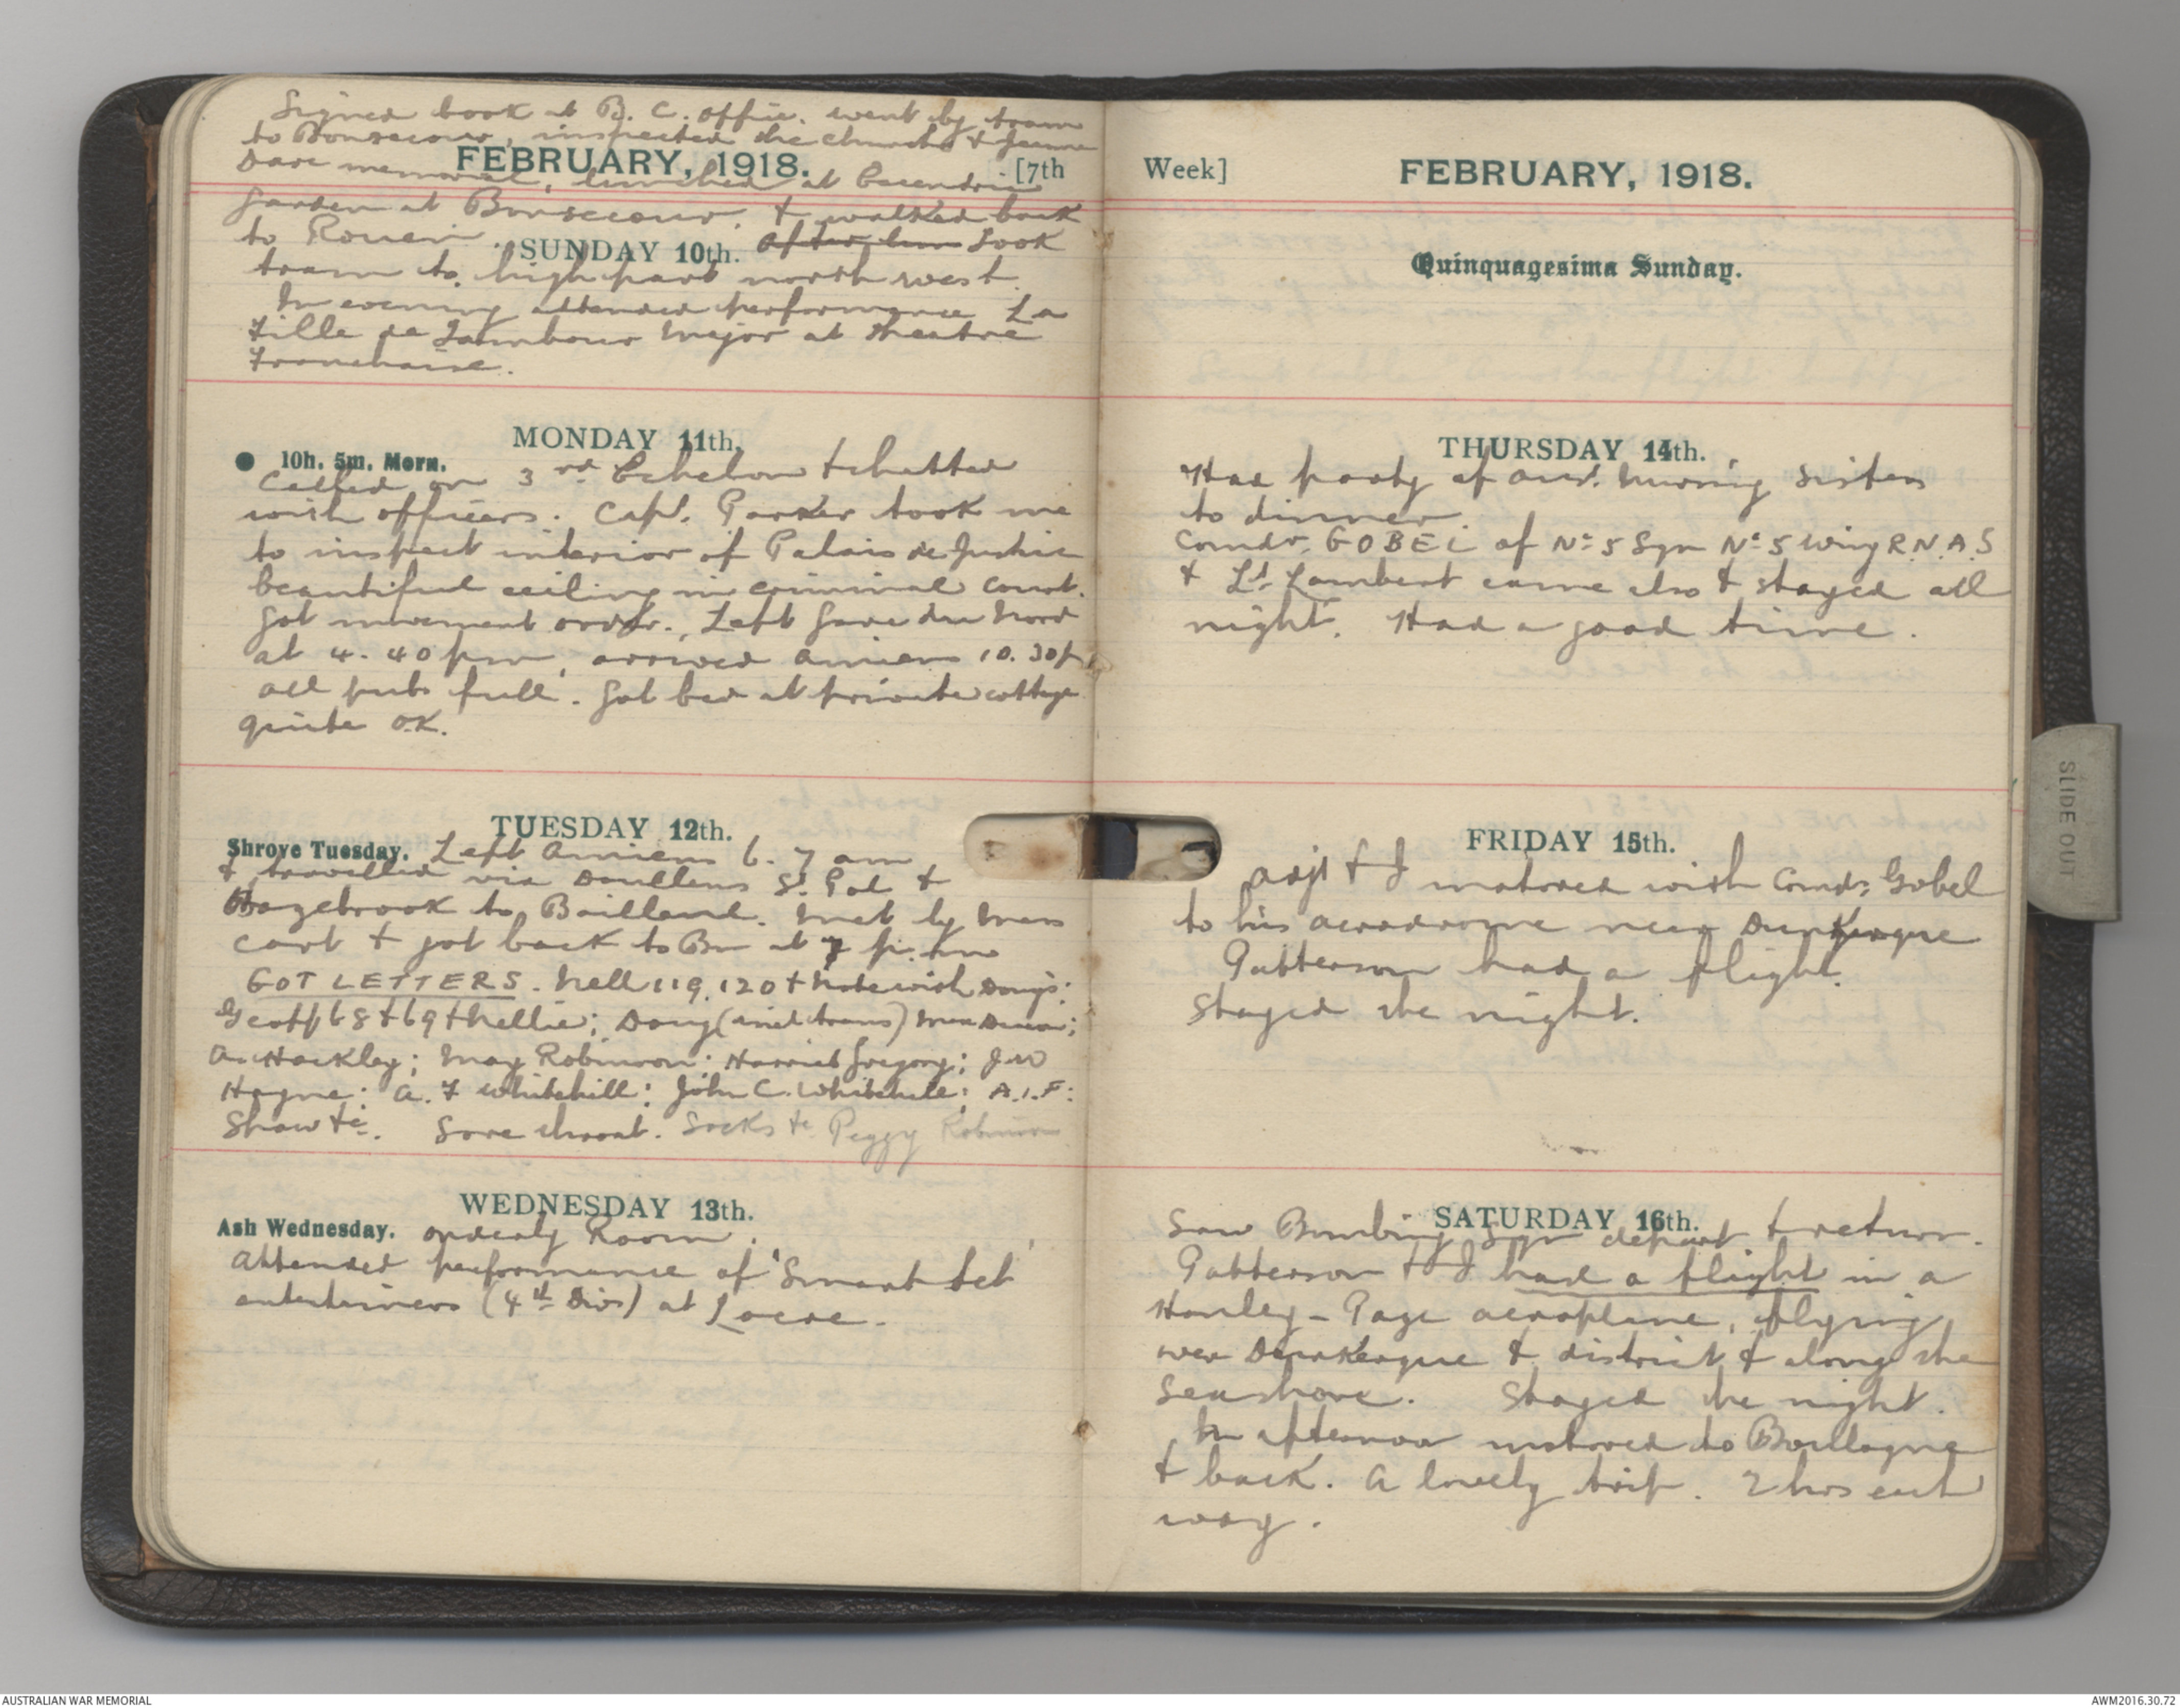 Signed book at B. C. office. went by tram
to Bonsecour, inspected the church & Jeanne
Darc memorial, lunched at
FEBRUARY, 1918. [7th
garden at Bonsecour, & walked back
to Rouen. After lun Took
SUNDAY 10th.
tram to high part north west.
In evening attended performance La
Fille de Tambour Major at Theatre
Francaise.
MONDAY 11th.
10h. 5m. Morn.
Called on 3rd Echelon & chatted
with officers. Capt. Parker took me
to inspect interior of Palais de Justice
beautiful ceiling in criminal court.
Got movement order. Left Gare du Nord
at 4.40 pm, arrived Amiens 10.30p
all pubs full. Got bed at private cottage
quite OK.
TUESDAY 12th.
Shrove Tuesday. Left Amiens 6.7 am
& travelled via Doullens St. Pol &
Hazebrook to Bailleul. Met by Mess
cart & got back to Bn at 7 p.m
GOT LETTERS. Nell 119, 120 & note with Doug's;
Geoff 68 & 69 & Nellie; Doug (
Hackley; May Robinson; Harriet Gregory; J W
Hayne; A. F Whitehill; John C. Whitehill; A.I.F:
Shaw &c. Sore throat. Socks fr Peggy Robinson
WEDNESDAY 13th.
Ash Wednesday. Orderly Room.
Attended performance of 'Smart Set'
entertainers (4th Div) at Locre.
Week] FEBRUARY, 1918.
Quinquagesima Sunday.
THURSDAY 14th.
Had party of Aus. Nursing Sisters
to dinner.
Comdr. GOBEL of No 5 Sqn No 5 Wing R.N.A.S
& Lt. Lambert came also & stayed all
night. Had a good time.
FRIDAY 15th.
Adjt & I motored with Comdr. Gobel
to his aerodrome near Dunkerque
Patterson had a flight.
Stayed the night.
SATURDAY 16th.
Saw Bombing Sqn depart & return.
Patterson & I had a flight in a
Hanley-Page aeroplane, flying
over Dunkerque & district & along the
seashore. Stayed the night.
In afternoon motored to Boullogne
& back. A lovely trip. 2 hrs each
way.
SLIDE OUT
AUSTRALIAN WAR MEMORIAL
AWM2016.30.72